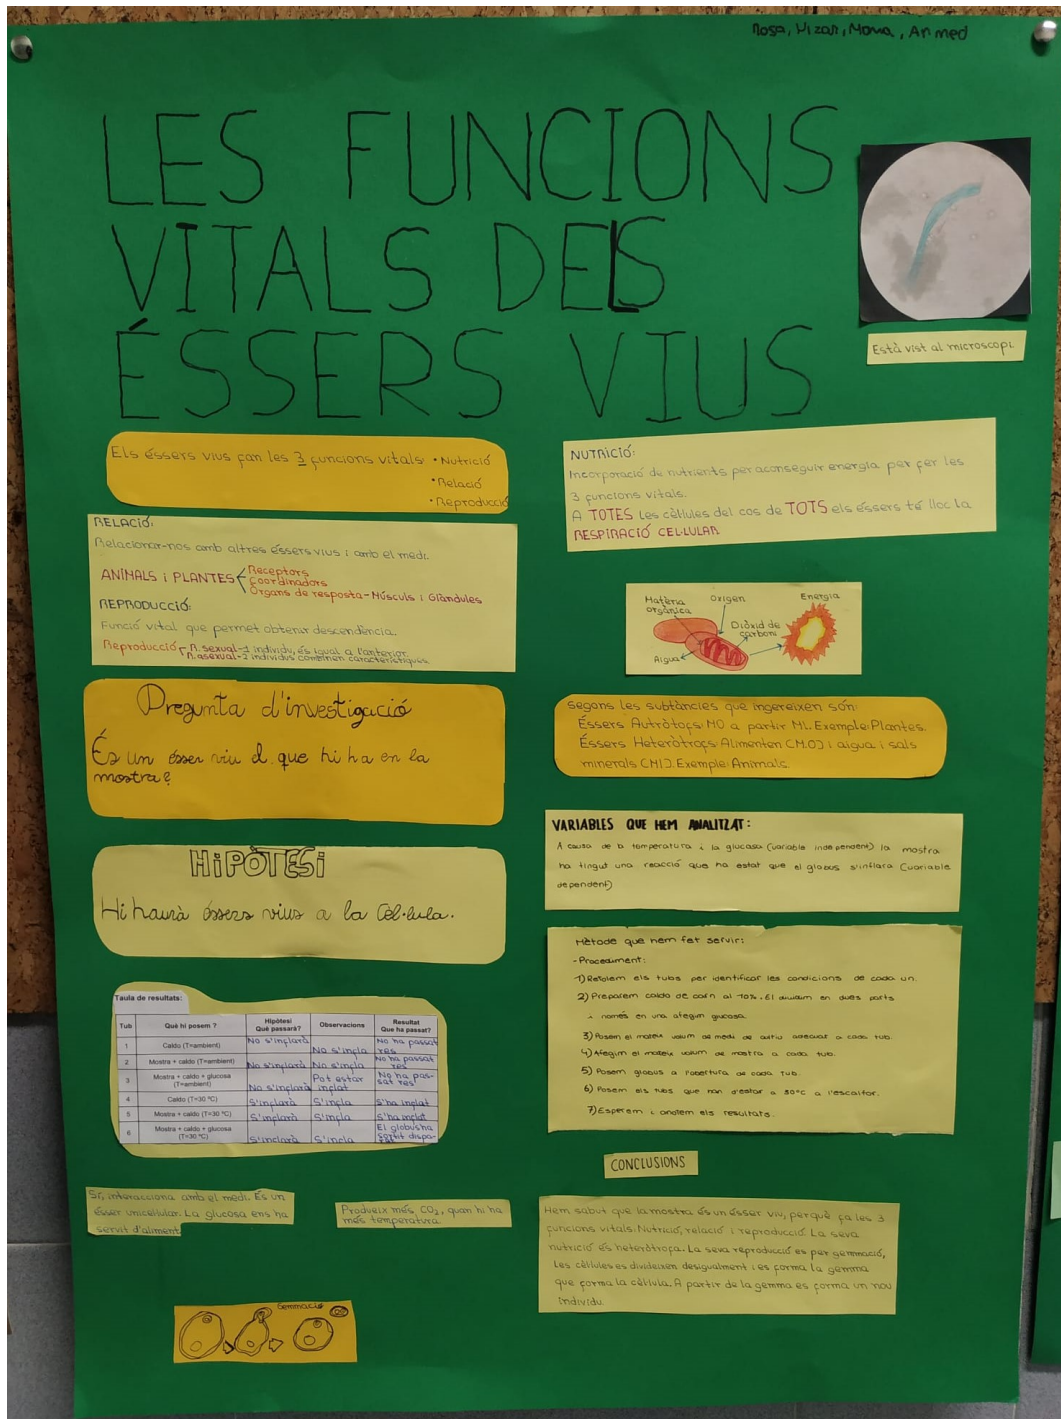 Rosa, Nizar, Mona, Ahmed
LES FUNCIONS
VITALS DELS
ÉSSERS VIUS
Està vist al microscopi.
Els éssers vius fan les 3 funcions vitals • Nutrició
• Relació
• Reproducció
RELACIÓ:
Relacionar-nos amb altres éssers vius i amb el medi.
ANIMALS i PLANTES
Receptors
Coordinadors
Òrgans de resposta-Músculs i Glàndules
REPRODUCCIÓ:
Funció vital que permet obtenir descendència.
Reproducció
R. sexual-1 individu, és igual a l'anterior.
R. asexual-2 individus combinen característiques.
Pregunta d'investigació
És un ésser viu el que hi ha en la
mostra?
HIPÒTESI
Hi haurà éssers vius a la Cèl·lula.
Taula de resultats:
Tub | Què hi posem ? | Hipòtesi Què passarà? | Observacions | Resultat Que ha passat?
1 | Caldo (T=ambient) | No s'inflarà | No s'infla | No ha passat res
2 | Mostra + caldo (T=ambient) | No s'inflarà | No s'infla | No ha passat res
3 | Mostra + caldo + glucosa (T=ambient) | No s'inflarà | Pot estar inflat | No ha pas-sat res
4 | Caldo (T=30 ºC) | S'inflarà | S'infla | S'ha inflat
5 | Mostra + caldo (T=30 ºC) | S'inflarà | S'infla | S'ha inflat
6 | Mostra + caldo + glucosa (T=30 ºC) | S'inflarà | S'infla | El globus ha sortit dispa-
Sí, interacciona amb el medi. És un
ésser unicel·lular. La glucosa ens ha
servit d'aliment
Produeix més, CO₂, quan hi ha
més temperatura.
Gemmació
NUTRICIÓ:
Incorporació de nutrients per aconseguir energia per fer les
3 funcions vitals.
A TOTES les cèl·lules del cos de TOTS els éssers té lloc la
RESPIRACIÓ CEL·LULAR
Matèria
orgànica
Oxigen
Energia
Diòxid de
carboni
Aigua
Segons les subtàncies que ingereixen són:
Éssers Autròtofs: MO a partir MI. Exemple: Plantes.
Éssers Heteròtrofs: Alimenten (M.O) i aigua i sals
minerals (MI). Exemple: Animals.
VARIABLES QUE HEM ANALITZAT:
A causa de la temperatura i la glucosa (variable independent) la mostra
ha tingut una reacció que ha estat que el globus s'inflara (variable
dependent)
Mètode que hem fet servir:
-Procediment:
1) Retolem els tubs per identificar les condicions de cada un.
2) Preparem caldo de carn al 10%. El dividim en dues parts
i només en una afegim glucosa.
3) Posem el mateix volum de medi de cultiu adequat a cada tub.
4) Afegim el mateix volum de mostra a cada tub.
5) Posem globus a l'obertura de cada tub.
6) Posem els tubs que han d'estar a 30°C a l'escalfor.
7) Esperem i anotem els resultats.
CONCLUSIONS
Hem sabut que la mostra és un ésser viu, perquè fa les 3
funcions vitals. Nutrició, relació i reproducció. La seva
nutrició és heteròtrofa. La seva reproducció es per gemmació,
les cèl·lules es divideixen desigualment i es forma la gemma
que forma la cèl·lula. A partir de la gemma es forma un nou
individu.